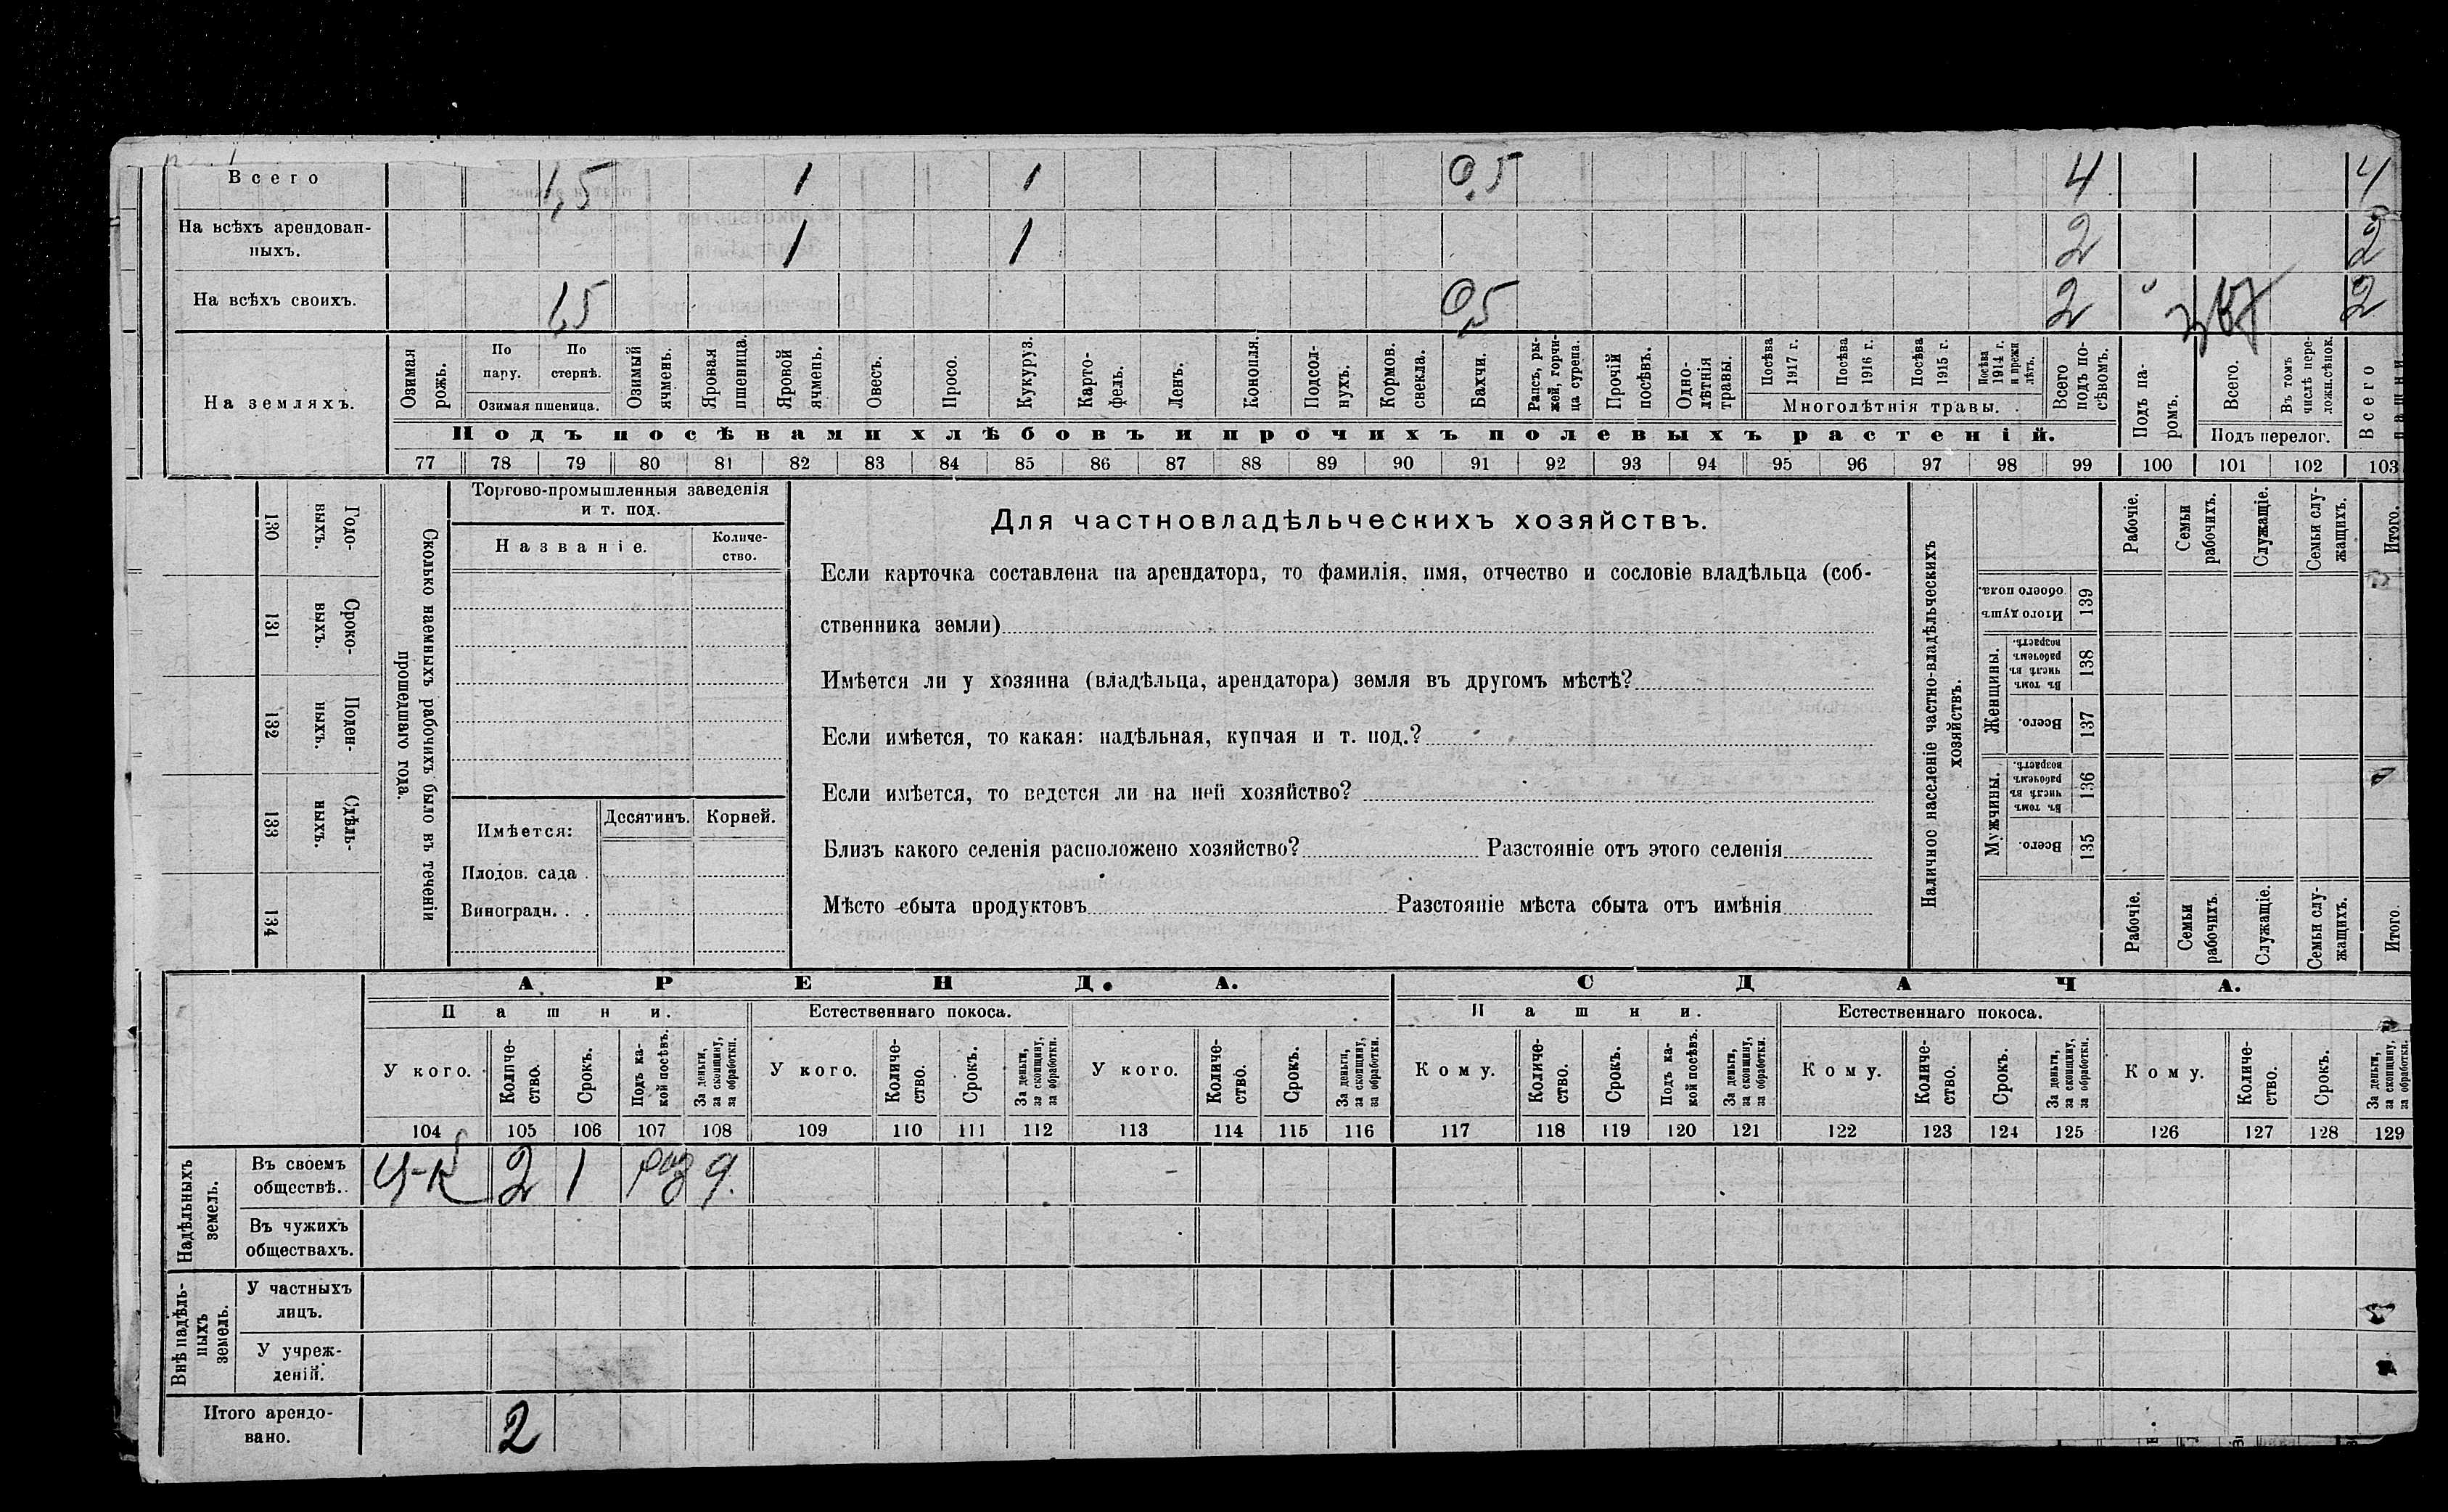 Всего 1,5 1 1 0,5 4 4
На всѣхъ арендован-
ныхъ. 1 1 2 2
На всѣхъ своихъ. 1,5 0,5 2 2
На земляхъ.
Озимая рожь.
По пару.
По стернѣ.
Озимая пшеница.
Озимый ячмень.
Яровая пшеница.
Яровой ячмень.
Овесъ.
Просо.
Кукуруз.
Карто-
фель.
Ленъ.
Конопля.
Подсол-
нухъ.
Кормов. свекла.
Бахчи.
Рапсъ, ры-
жей, горчи-
ца сурепа.
Прочій посѣвъ.
Одно-
лѣтнія травы.
Посѣва 1917 г.
Посѣва 1916 г.
Посѣва 1915 г.
Посѣва 1914 г. и прежн. лѣтъ.
Многолѣтнія травы.
Всего подъ по-
сѣвомъ.
Подъ па-
ромъ.
Всего.
Въ томъ числѣ пере-
ложн. сѣнок.
Подъ перелог.
Всего пашни
Подъ посѣвами хлѣбовъ и прочихъ полевыхъ растеній.
77 78 79 80 81 82 83 84 85 86 87 88 89 90 91 92 93 94 95 96 97 98 99 100 101 102 103
130 Годо-
выхъ.
131 Сроко-
выхъ.
132 Поден-
ныхъ.
133 Сдѣль-
ныхъ.
134
Сколько наемныхъ рабочихъ было въ теченіи
прошедшаго года.
Торгово-промышленныя заведенія
и т. под.
Названіе.
Количе-
ство.
Имѣется:
Десятинъ. Корней.
Плодов. сада .
Виноградн. . .
Для частновладѣльческихъ хозяйствъ.
Если карточка составлена на арендатора, то фамилія, имя, отчество и сословіе владѣльца (соб-
ственника земли)
Имѣется ли у хозяина (владѣльца, арендатора) земля въ другомъ мѣстѣ?
Если имѣется, то какая: надѣльная, купчая и т. под.?
Если имѣется, то ведется ли на ней хозяйство?
Близъ какого селенія расположено хозяйство? Разстояніе отъ этого селенія
Мѣсто сбыта продуктовъ Разстояніе мѣста сбыта отъ имѣнія
Наличное населеніе частно-владѣльческихъ
хозяйствъ.
Рабочіе.
Семьи рабочихъ.
Служащіе.
Семьи слу-
жащихъ.
Итого.
Итого душъ обоего пола. 139
Женщины.
Въ томъ числѣ въ рабочемъ возрастѣ. 138
Всего. 137
Мужчины.
Въ томъ числѣ въ рабочемъ возрастѣ. 136
Всего. 135
Рабочіе.
Семьи рабочихъ.
Служащіе.
Семьи слу-
жащихъ.
Итого
АРЕНДА. СДАЧА.
Пашни. Естественнаго покоса. Пашни. Естественнаго покоса.
У кого.
Количе-
ство.
Срокъ.
Подъ ка-
кой посѣвъ.
За деньги,
за скопщину,
за обработки.
У кого.
Количе-
ство.
Срокъ.
За деньги,
за скопщину,
за обработки.
У кого.
Количе-
ство.
Срокъ.
За деньги,
за скопщину,
за обработки.
Кому.
Количе-
ство.
Срокъ.
Подъ ка-
кой посѣвъ.
За деньги,
за скопщину,
за обработки.
Кому.
Количе-
ство.
Срокъ.
За деньги,
за скопщину,
за обработки.
Кому.
Количе-
ство.
Срокъ.
За деньги,
за скопщину,
за обработки.
104 105 106 107 108 109 110 111 112 113 114 115 116 117 118 119 120 121 122 123 124 125 126 127 128 129
Надѣльныхъ
земель.
Въ своемъ
обществѣ. . 2 1
Въ чужихъ
обществахъ.
Внѣ надѣль-
ныхъ
земель.
У частныхъ
лицъ.
У учреж-
деній.
Итого арендо-
вано. 2